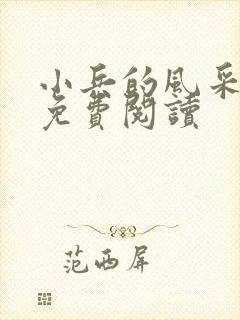 小岳的風采
免費閱讀
范西屏